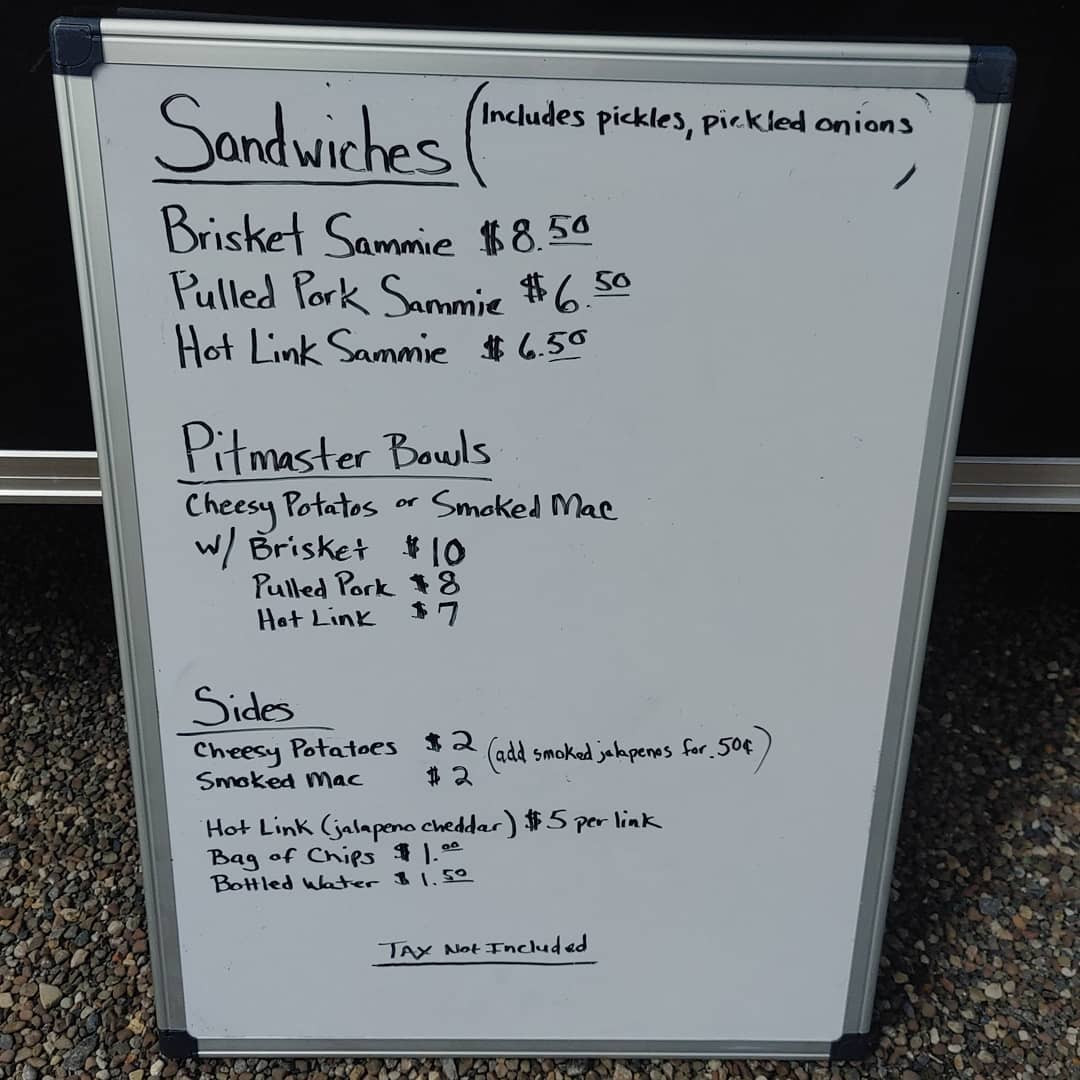 Sandwiches (Includes pickles, pickled onions)
Brisket Sammie $8.50
Pulled Pork Sammie $6.50
Hot Link Sammie $6.50
Pitmaster Bowls
Cheesy Potatos or Smoked Mac
w/ Brisket $10
Pulled Pork $8
Hot Link $7
Sides
Cheesy Potatoes $2 (add smoked jalapenos for .50¢)
Smoked Mac $2
Hot Link (jalapeno cheddar) $5 per link
Bag of Chips $1.00
Bottled Water $1.50
TAX Not Included